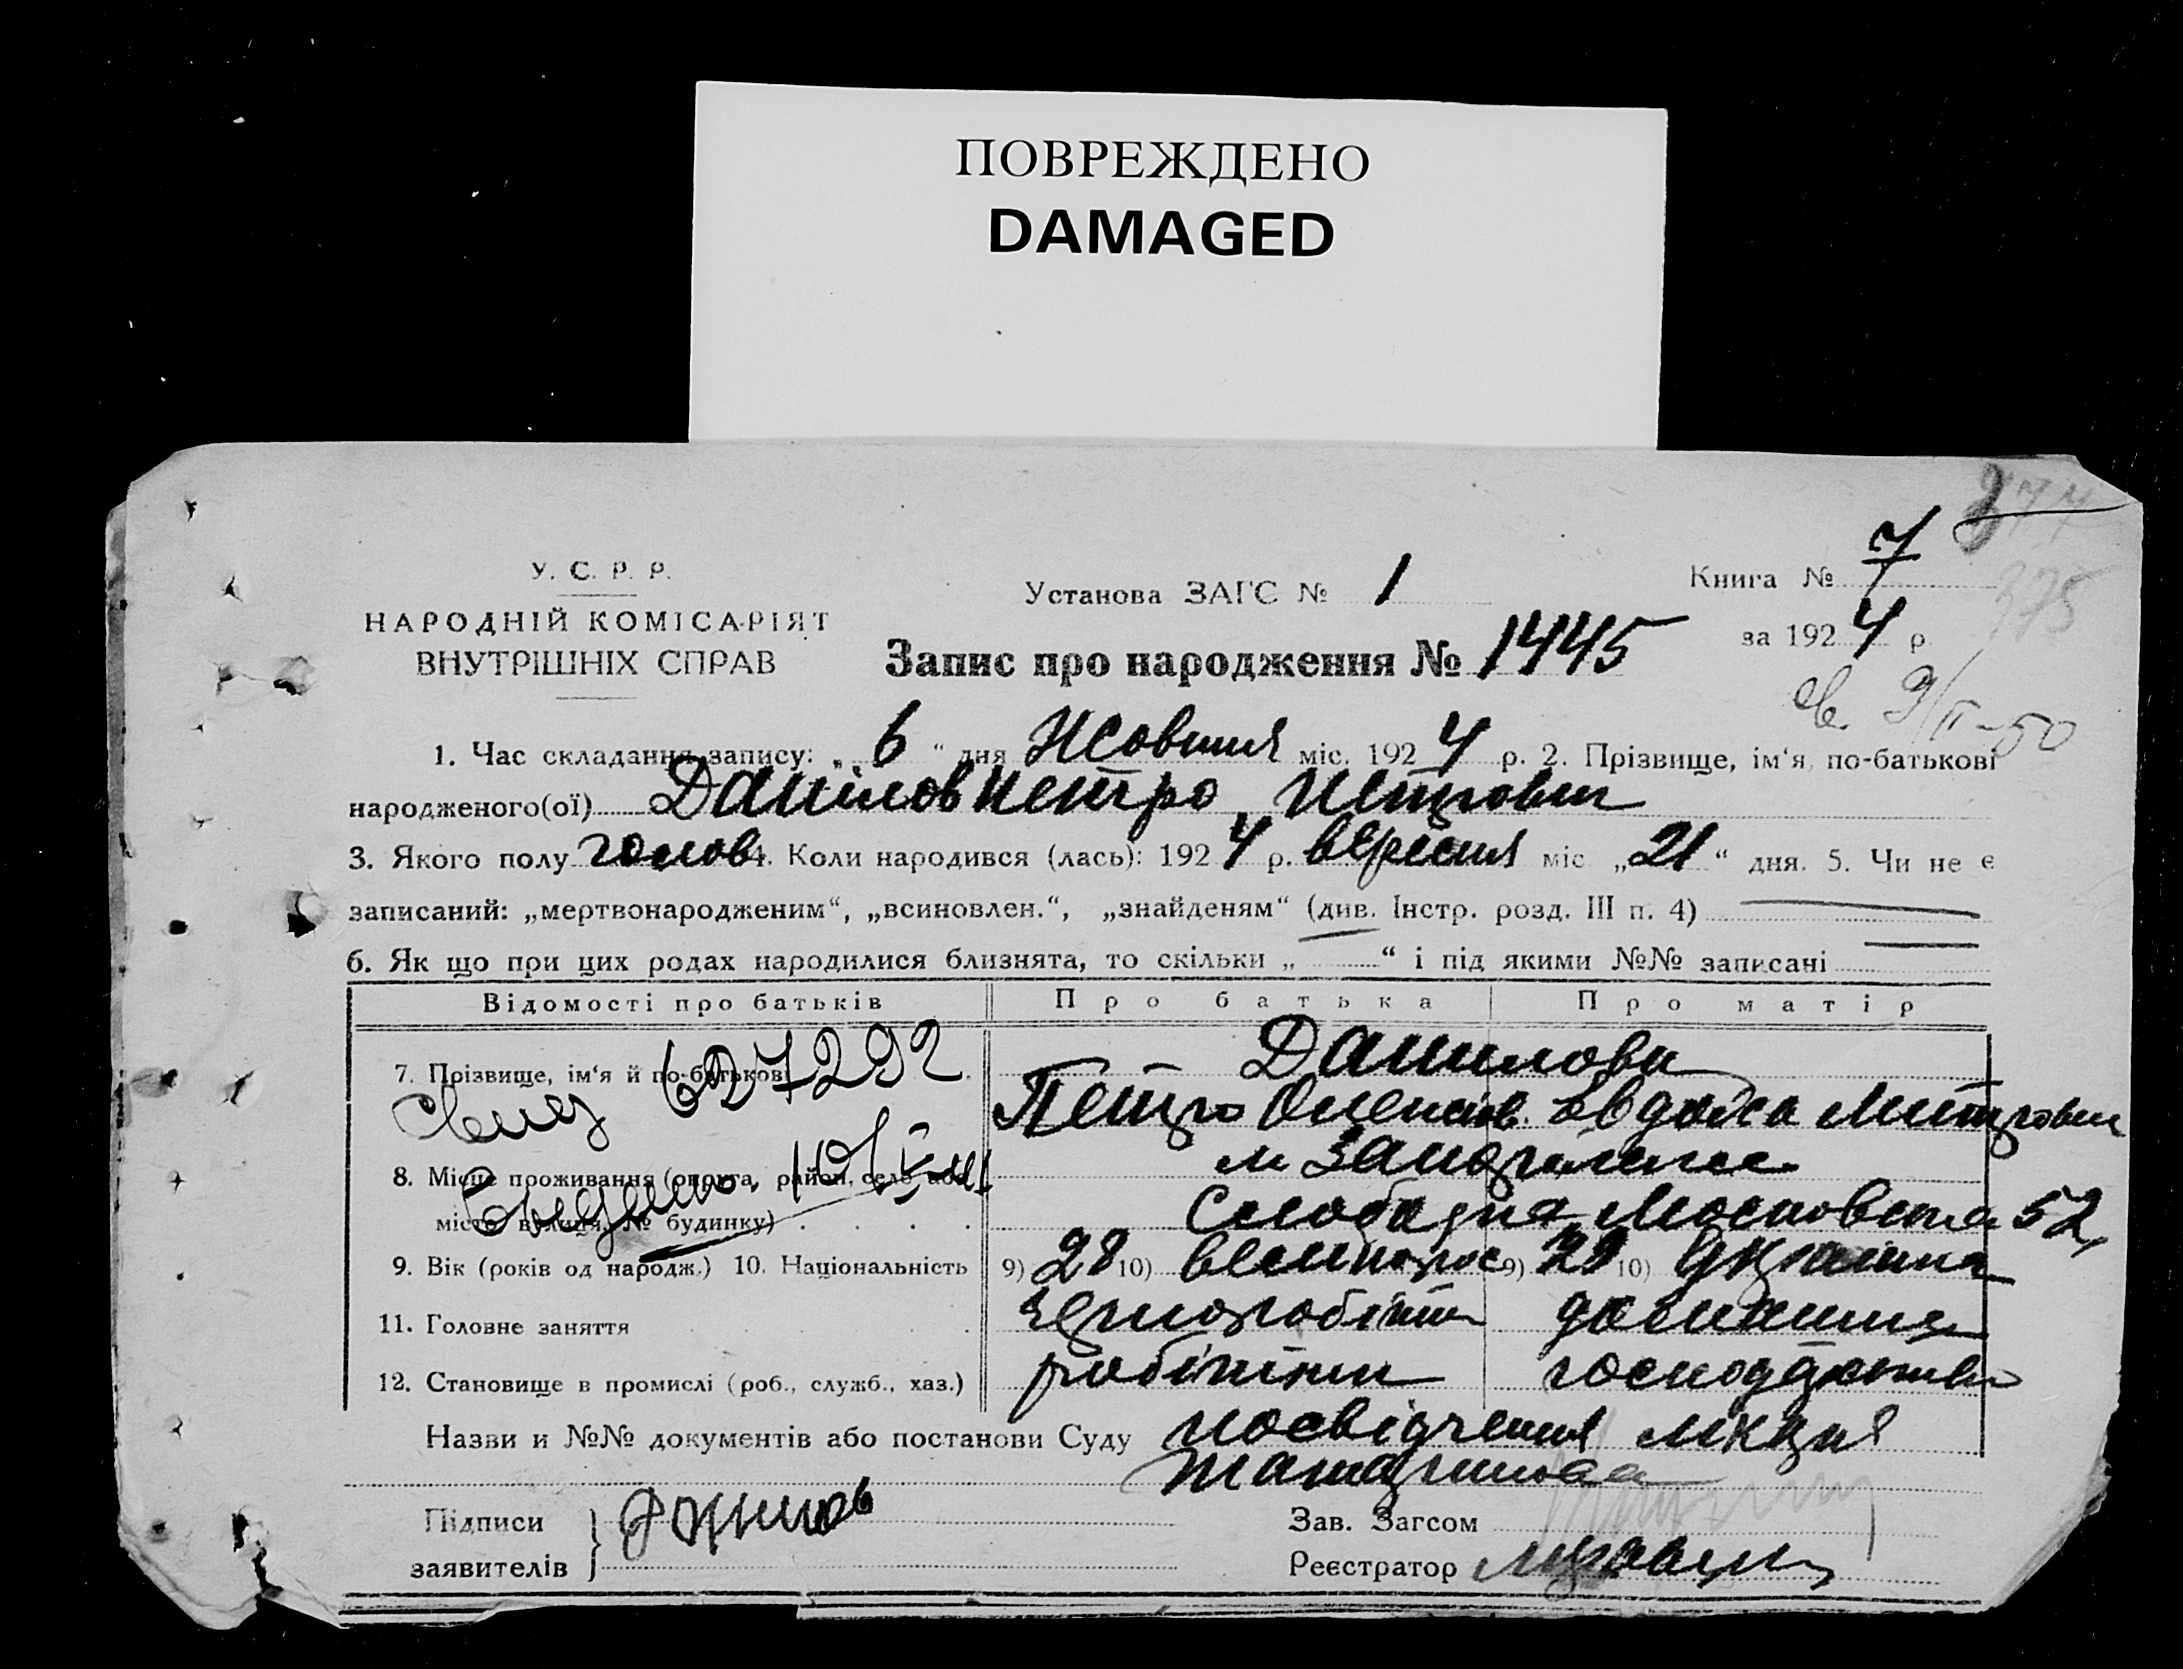 ПОВРЕЖДЕНО
DAMAGED
У. С. Р. Р.
НАРОДНІЙ КОМІСАРІЯТ
ВНУТРІШНІХ СПРАВ
Установа ЗАГС № 1
Книга № 7
за 1924 р
375
Запис про народження № 1445
св. 9/II-50
1. Час складання запису: „ 6 “ дня Жовтня міс. 1924 р. 2. Прізвище, ім‘я, по-батькові
народженого(ої) Данілов Петро Петрович
3. Якого полу голов 4. Коли народився (лась): 1924 р. вересня міс „21“ дня. 5. Чи не є
записаний: „мертвонародженим“, „всиновлен.“, „знайденям“ (див. Інстр. розд. III п. 4)
6. Як що при цих родах народилися близнята, то скільки „ “ і під якими №№ записані
Відомості про батьків Про батька Про матір
7. Прізвище, ім‘я й по-батькові Данилови
627292
Петро Олексіїв. Явдоха Митрович
8. Місце проживання (округа, район, село або м Запоріжжє
місто, вулиця, № будинку) Слобадка Московська 52
9. Вік (років од народж.) 10. Національність 9) 28 10) великорос 9) 28 10) Українка
11. Головне заняття черноробітн домашнє
12. Становище в промислі (роб., служб., хаз.) робітник господарство
Назви и №№ документів або постанови Суду посвідчення лікаря
Підписи
заявителів
Зав. Загсом
Реєстратор